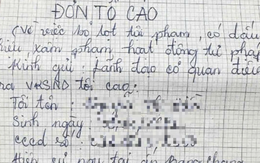 ĐƠN TỐ CAO
(Về việc bỏ lọt tội phạm, có dấu
hiệu xâm phạm hoạt động tư pháp
Kính gửi: Lãnh đạo cơ quan điều
tra VKSND tối cao.
Tôi tên:
Sinh ngày
cccd số
Hiện cư